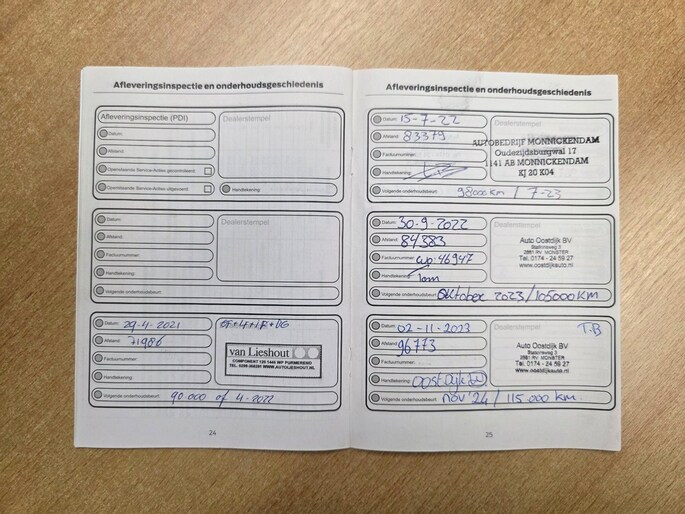 Afleveringsinspectie en onderhoudsgeschiedenis
Afleveringsinspectie (PDI)
Dealerstempel
Datum:
Afstand:
Openstaande Service-Acties gecontroleerd:
Openstaande Service-Acties uitgevoerd:
Handtekening:
Datum:
Dealerstempel
Afstand:
Factuurnummer:
Handtekening:
Volgende onderhoudsbeurt:
Datum: 29-4-2021
Afstand: 71986
Factuurnummer:
Handtekening:
van Lieshout
COMPONENT 120 1446 WP PURMEREND
WWW.AUTOLIESHOUT.NL
Volgende onderhoudsbeurt: 90.000 of 4-2022
24
Afleveringsinspectie en onderhoudsgeschiedenis
Datum: 15-7-22
Dealerstempel
Afstand: 83379
Factuurnummer:
Handtekening:
AUTOBEDRIJF MONNICKENDAM
Oudezijdsburgwal 17
1141 AB MONNICKENDAM
KJ 20 K04
Volgende onderhoudsbeurt: 98000 km / 7-23
Datum: 30-9-2022
Dealerstempel
Afstand: 84383
Factuurnummer: wo:46947
Handtekening: Tom
Auto Oostdijk BV
Stationsweg 3
2691 RV MONSTER
Tel. 0174 - 24 59 27
www.oostdijkauto.nl
Volgende onderhoudsbeurt: Oktober 2023/105000 KM
Datum: 02-11-2023
Dealerstempel T.B
Afstand: 96773
Factuurnummer:
Handtekening: Oostdijk
Auto Oostdijk BV
Stationsweg 3
2691 RV MONSTER
Tel. 0174 - 24 59 27
www.oostdijkauto.nl
Volgende onderhoudsbeurt: nov '24 / 115.000 km.
25